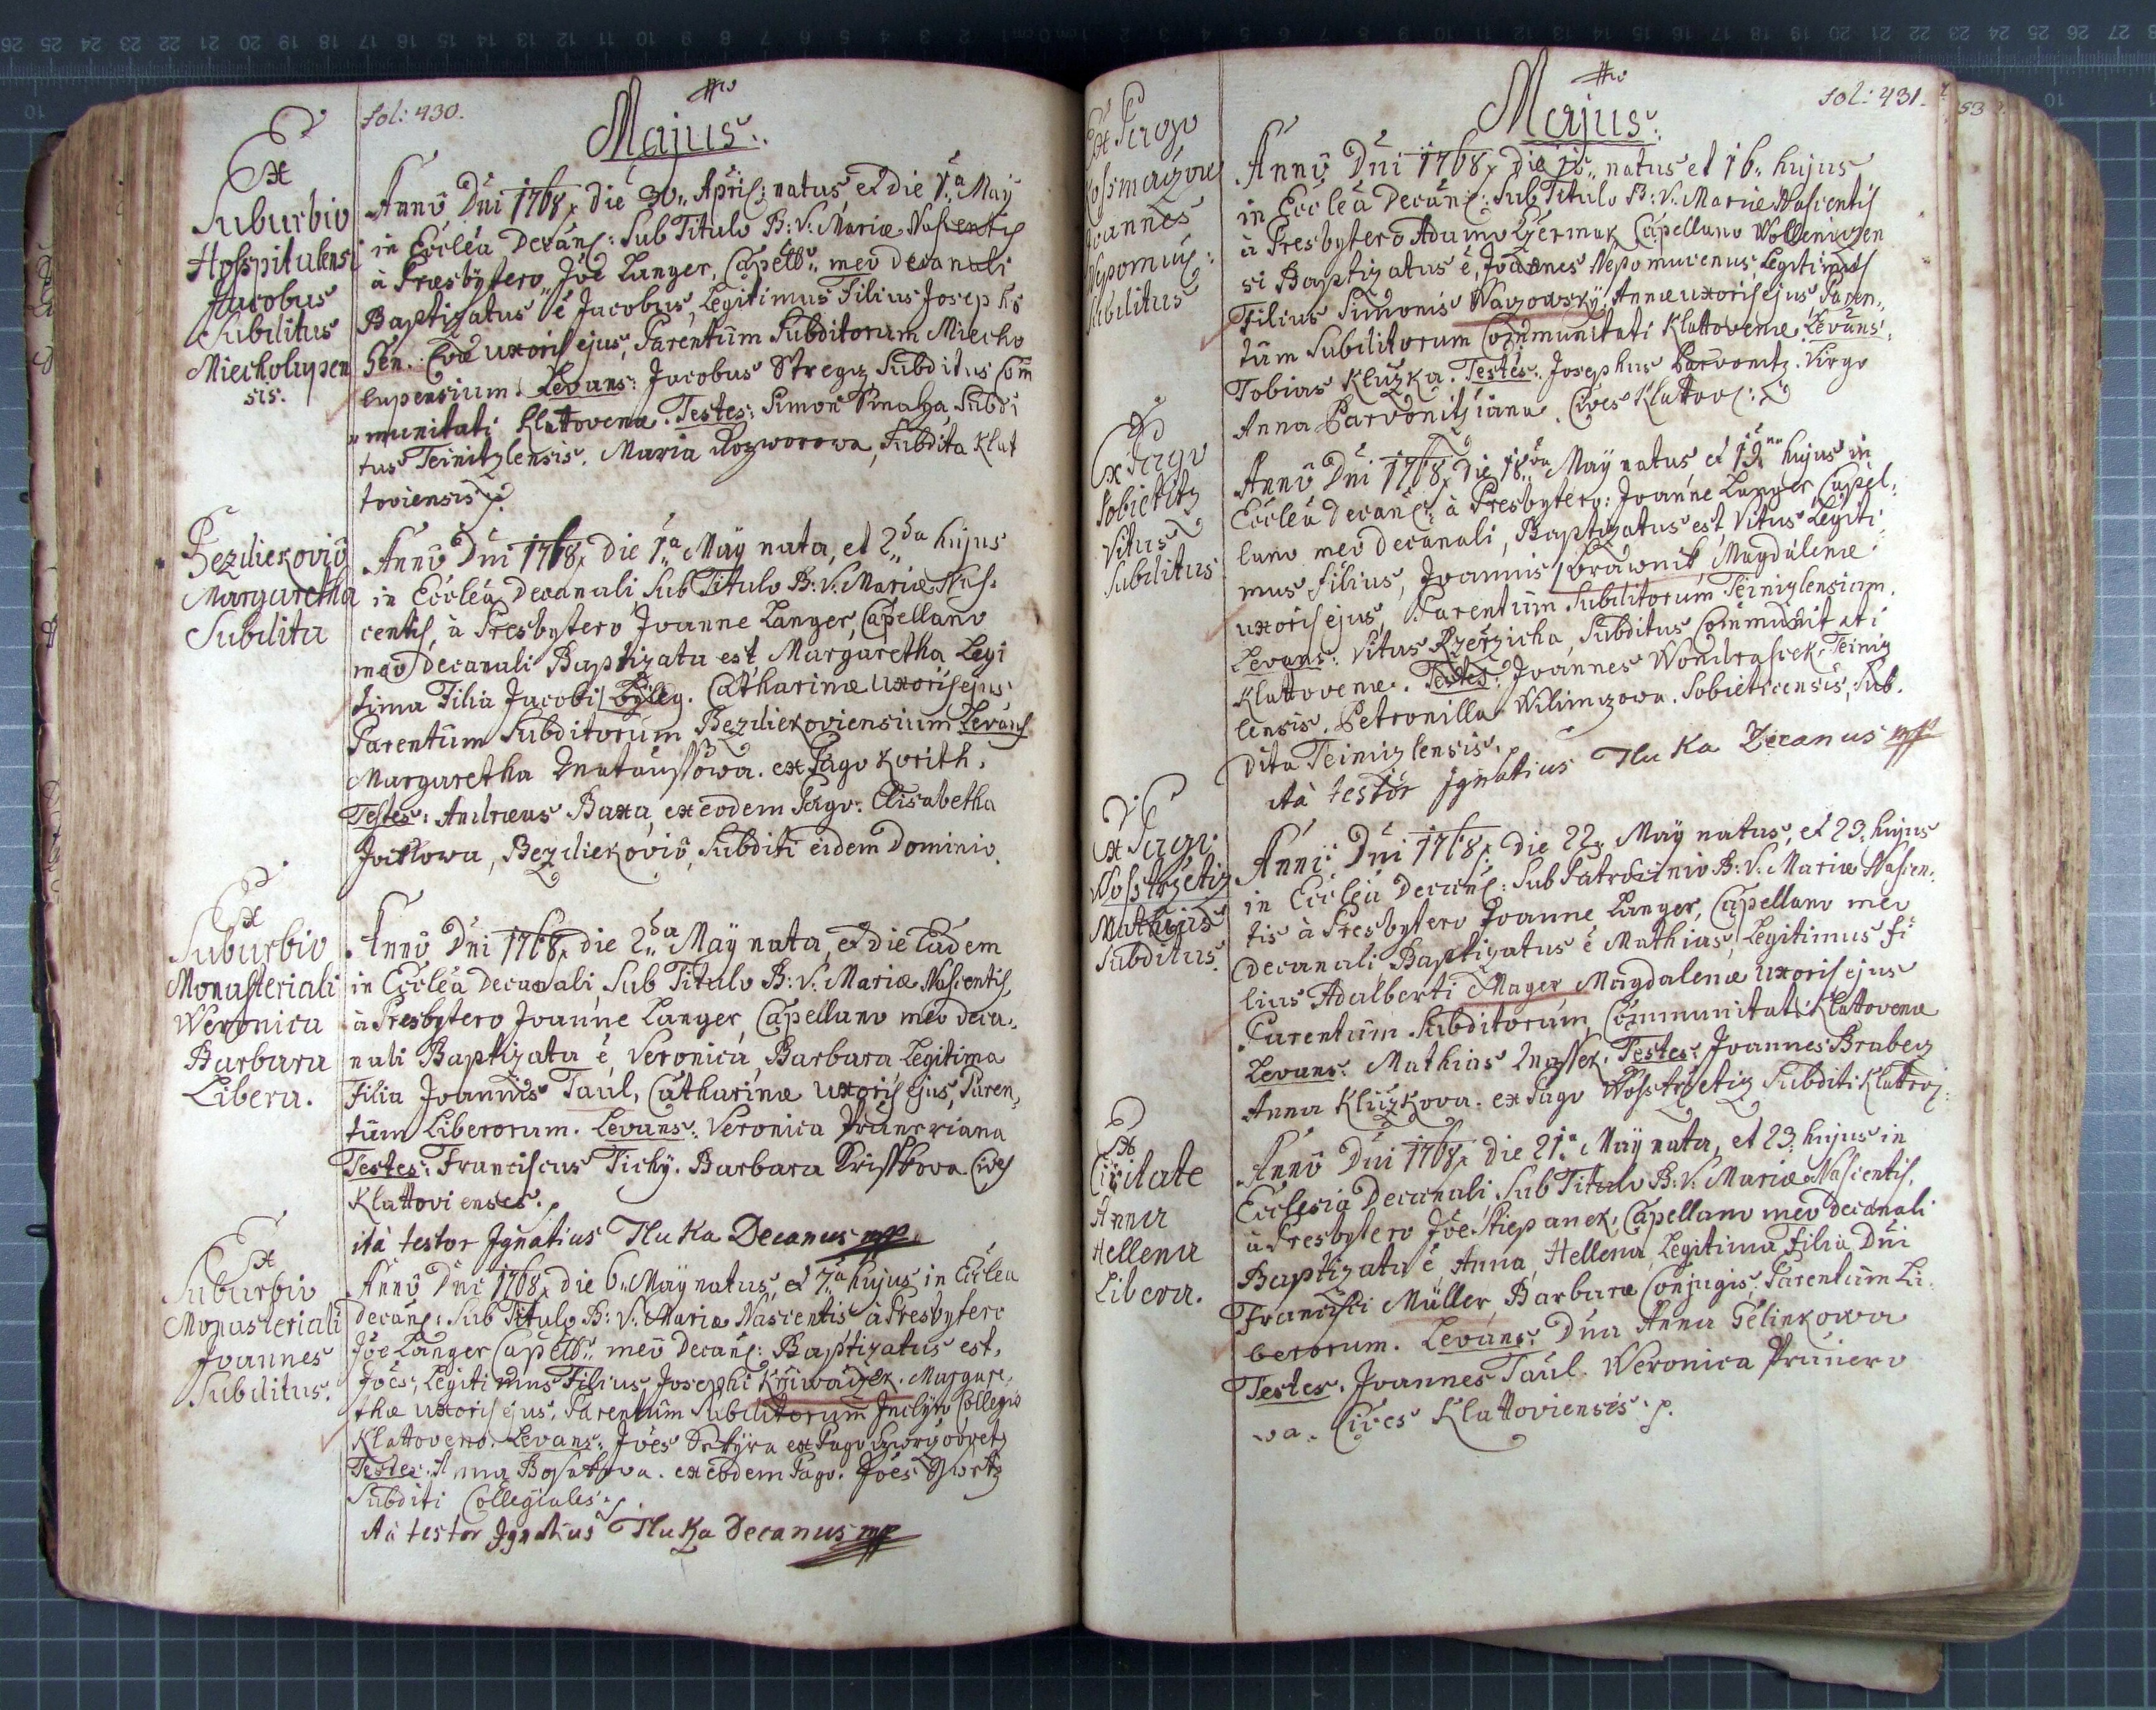 fol: 430.
Majus.
Ex
Suburbio
Hospitalensi
Jacobus
Subditus
Miecholupen
sis.
Annô Dni 1768, die 30. April: natus, et die 1.a Maÿ
in Ecclêa Decanl: Sub Titulo B: V: Mariæ Nascentis
à Præsbÿtero Joê Langer, Capell. meo decanali
Baptizatus ê Jacobus, Legitimus Filius Josephi
Sen. Evæ uxoris ejus, Parentum Subditorum Miecho
lupensium. Levans: Jacobus Stregz Subditus Com
munitati Klattovenæ. Testes: Simon Smaha Subdi
tus Teinitzlensis. Maria Rozworowa, Subdita Klat
toviensis.
Bezdiekoviô
Margaretha
Subdita
Annô Dni 1768, Die 1.a Maÿ nata, et 2.da hujus
in Ecclêa Decanali Sub Titulo B: V: Mariæ Nas.
centis, à Presbytero Joanne Langer, Capellano
meo Decanali Baptizata est Margaretha Legi
tima Filia Jacobi Bÿleg. Catharinæ Uxoris ejus
Parentum Subditorum Bezdiekoviensium Levans
Margaretha Matausſowa. ex Pago Korith.
Testes: Andreas Baxa, ex eodem Pago. Elisabetha
Jacklowa, Bezdiekoviô, Subditi eidem Dominio.
Ex
Suburbio
Monasteriali
Weronica
Barbara
Libera.
Annô Dni 1768, die 2.da Maÿ nata, et die Eadem
in Ecclêa Decanali, Sub Titulo B: V: Mariæ Nascentis,
à Presbytero Joanne Langer, Capellano meo deca
nali Baptizata ê, Veronica, Barbara Legitima
Filia Joannis Taul, Catharinæ uxoris ejus, Paren
tum Liberorum. Levans: Veronica Pruneriana
Testes: Franciscus Tichÿ. Barbara Krisſkova Cives
Klattovienses.
ità testor Ignatius Tluka Decanus mp
Ex
Suburbio
Monasteriali
Joannes
Subditus.
Annô Dni 1768, die 6. Maÿ natus, et 7.a hujus in Ecclêa
decanl: Sub Titulo B: V: Mariæ Nascentis à Presbytero
Joê Langer Capell. meô Decanl: Baptizatus est,
Joês, Legitimus Filius Josephi Kriwaczek. Margare
thæ uxoris ejus, Parentum Subditorum Inclyto Collegio
Klattoveno. Levans: Joês Sekÿra ex Pago
Testes: Anna. ex eodem Pago. Joês Gworz
Subditi Collegiales.
ità testor Ignatius Tluka Decanus mp
fol: 431.
53
Majus.
Ex Pago
Kosmaczow
Joannes
Nepomuc:
Subditus
Annô Dni 1768, die 15. natus et 16. hujus
in Ecclêa Decanl: Sub Titulo B: V: Mariæ Nascentis
à Presbytero Adamo Czermak Capellano Wolleniczen
si Baptizatus ê, Joannes Nepomucenus, Legitimus
Filius Simonis Waczowskÿ, Annæ uxoris ejus Paren
tum Subditorum Communitati Klattovenæ. Levans:
Tobias Kluzka. Testes: Josephus Parvonitz. Virgo
Anna Parvonitziana. Cives Klattov:
Ex Pago
Sobietitz
Vitus
Subditus
Annô Dni 1768, die 18.va Maÿ natus et 19.na hujus in
Ecclêa Decanl: à Presbytero: Joanne Langer Capel
lano meo decanali, Baptizatus est, Vitus Legiti
mus filius, Joannis Brawnik, Magdalenæ
uxoris ejus, Parentum Subditorum Teiniczlensium.
Levans: Vitus Rzerzicha, Subditus Communitati
Klattovenæ. Testes: Joannes Wondrasciek, Teinicz
lensis. Petronilla Wilimczowa. Sobieticensis, Sub.
dita Teiniczlensis.
ità testor Ignatius Tluka Decanus mp
Ex Pago
Wostrzetiz
Mathias
Subditus.
Annô Dni 1768, die 22. Maÿ natus, et 23. hujus
in Ecclêa Decanl: Sub Patrocinio B: V: Mariæ Nascen
tis à Presbytero Joanne Langer, Capellano meo
decanali Baptizatus ê Mathias, Legitimus fi
lius Adalberti Mayer Magdalenæ uxoris ejus
Parentum Subditorum, Communitati Klattovenæ
Levans: Mathias Masſek. Testes: Joannes Brabecz
Anna Kluzkova. ex Pago Wostrzetiz Subditi Klattov:
Ex
Civitate
Anna
Hellena
Libera.
Annô Dni 1768, die 21.a Maÿ nata, et 23. hujus in
Ecclesia Decanali, Sub Titulo B: V: Mariæ Nascentis,
à Presbytero Joê Stiepanek, Capellano meo decanali
Baptizata ê Anna, Hellena, Legitima Filia Dni
Francisci Müller, Barbaræ Conjugis, Parentum Li
berorum. Levans: Dna Anna Gelinkowa
Testes. Joannes Taul. Weronica Prunero
va. Cives Klattoviensis.